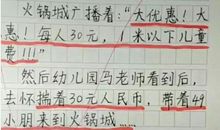 火锅城广播着:“大优惠!大
惠!每人30元,1米以下儿童
费!!!”
然后幼儿园马老师看到后,
去怀揣着30元人民币,带着49
小朋来到火锅城……